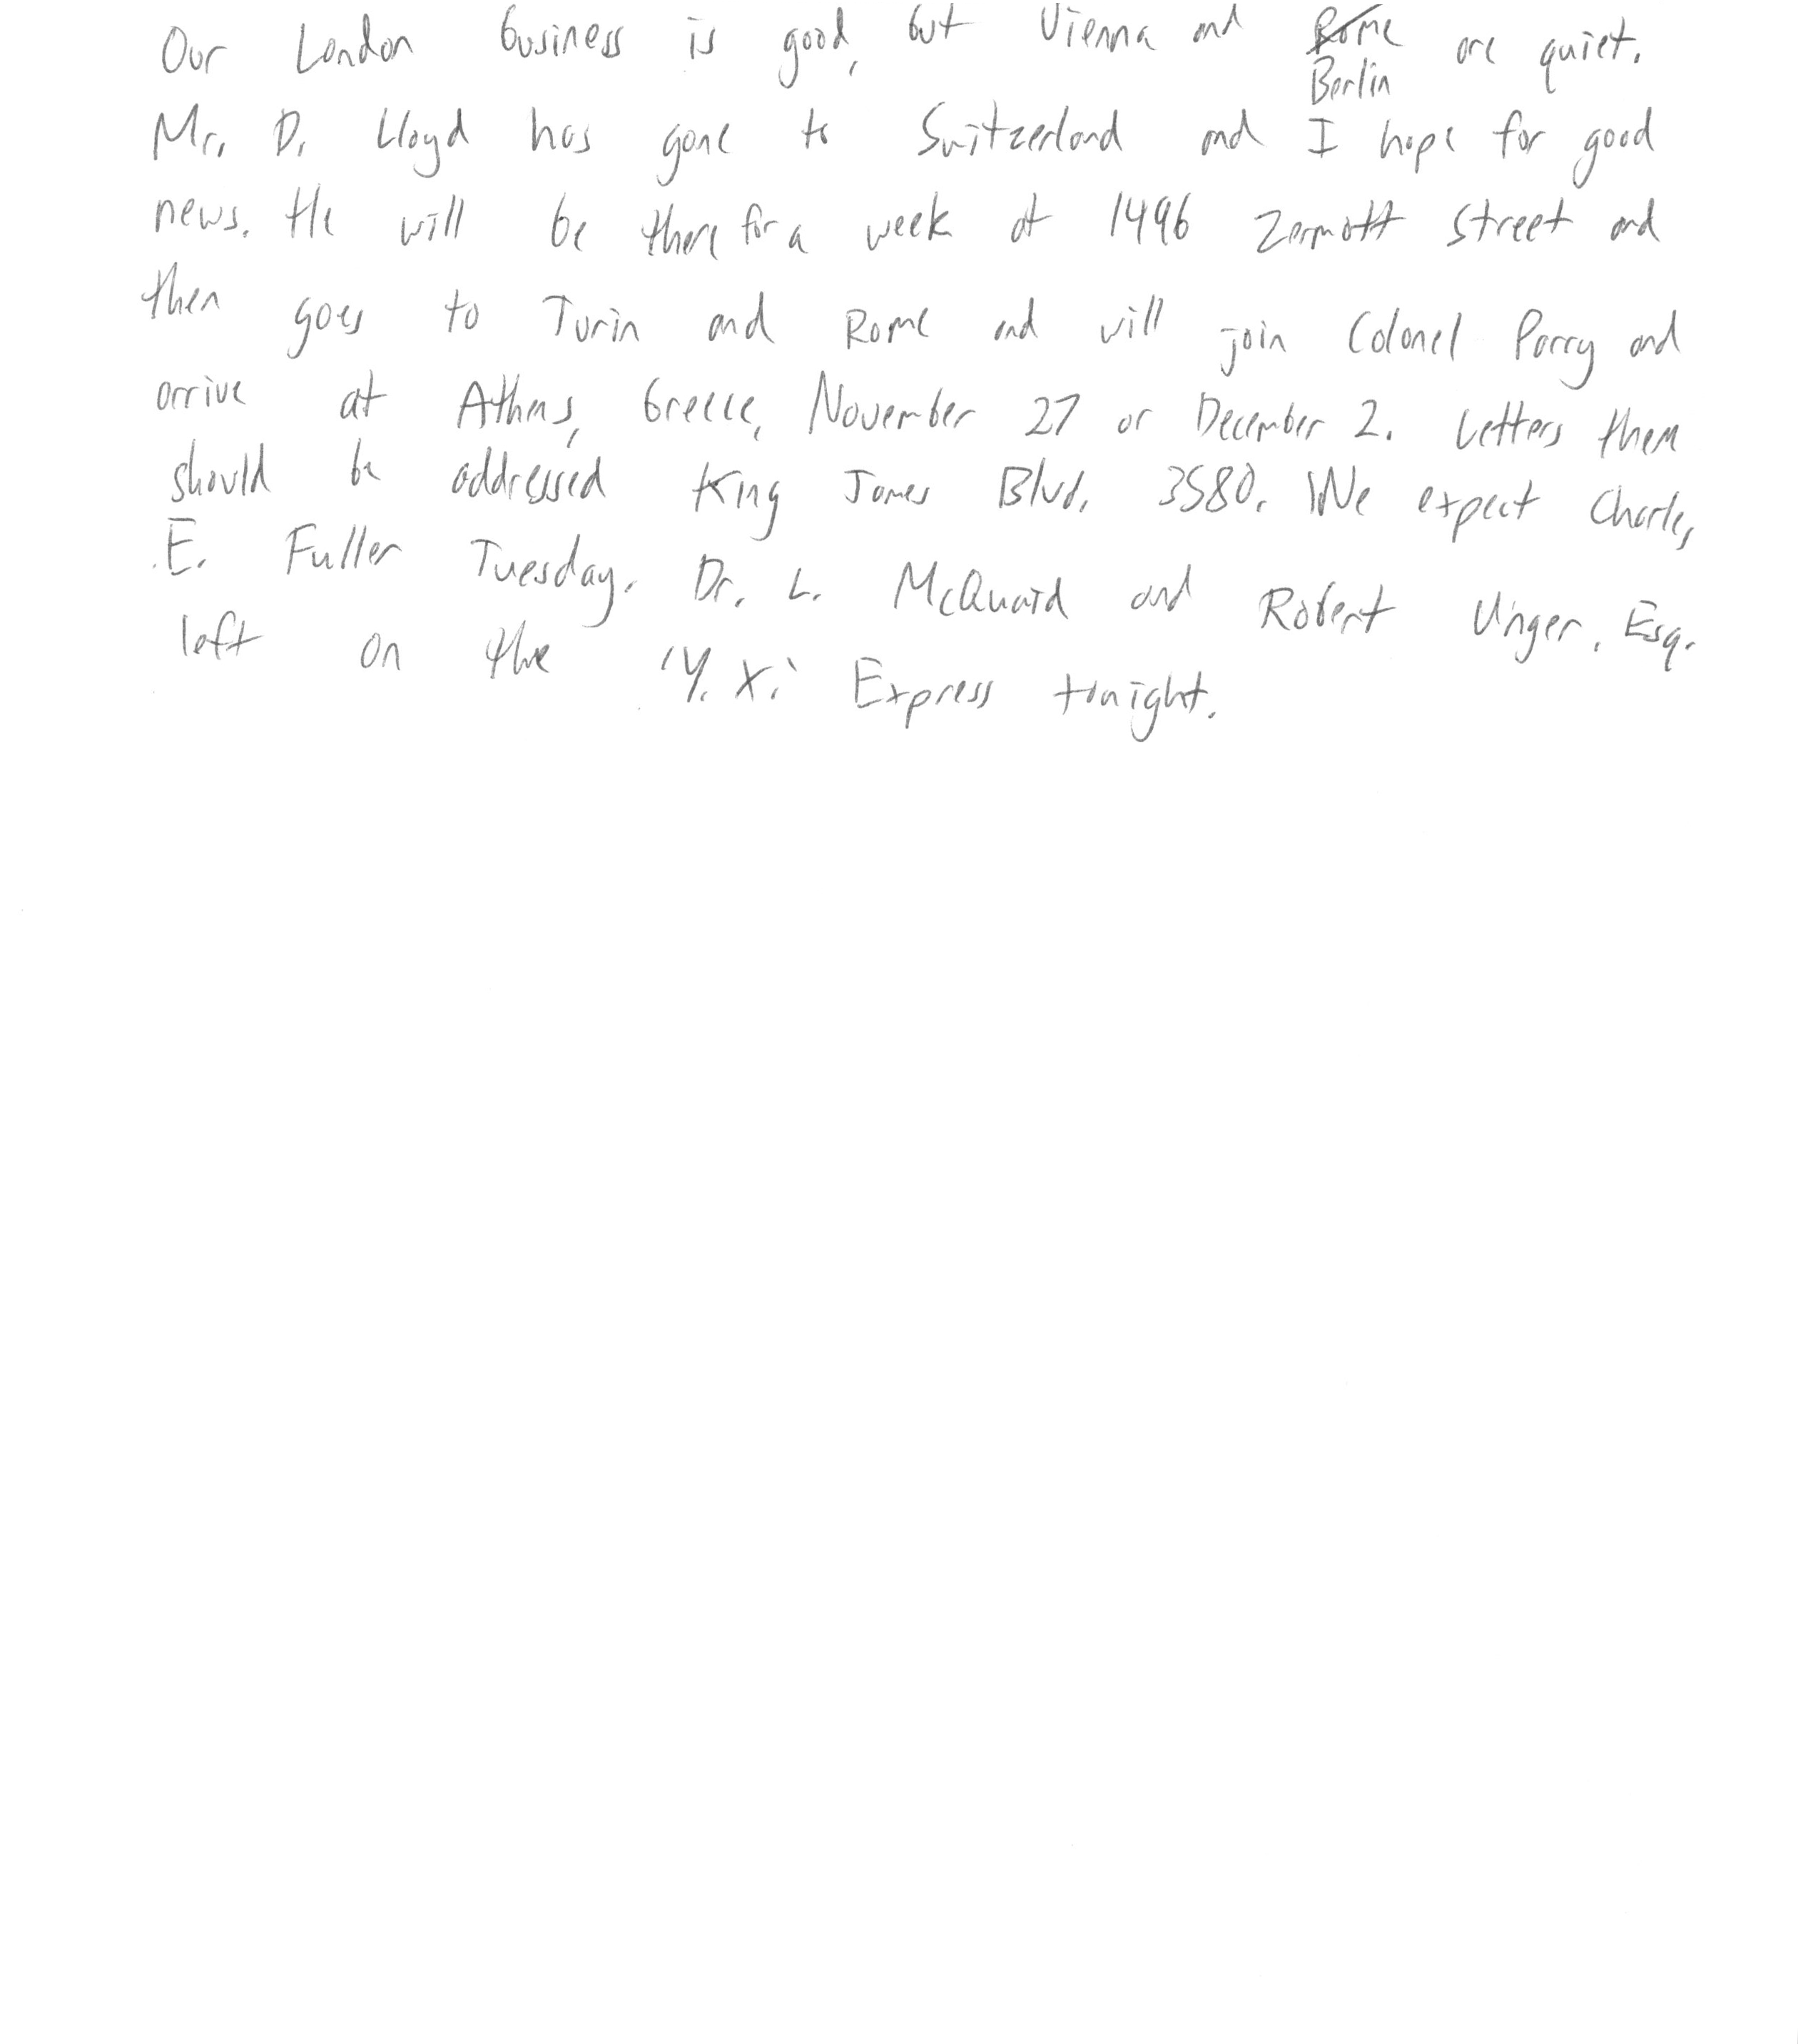 Our London business is good, but Vienna and Rome are quiet.
Berlin
Mr. D. Lloyd has gone to Switzerland and I hope for good
news. He will be there for a week at 1496 Zermott Street and
then goes to Turin and Rome and will join Colonel Parry and
arrive at Athens, Greece, November 27 or December 2. Letters them
should be addressed King James Blvd. 3580. We expect Charles
E. Fuller Tuesday. Dr. L. McQuaid and Robert Unger, Esq.
left on the 'Y. X.' Express tonight.